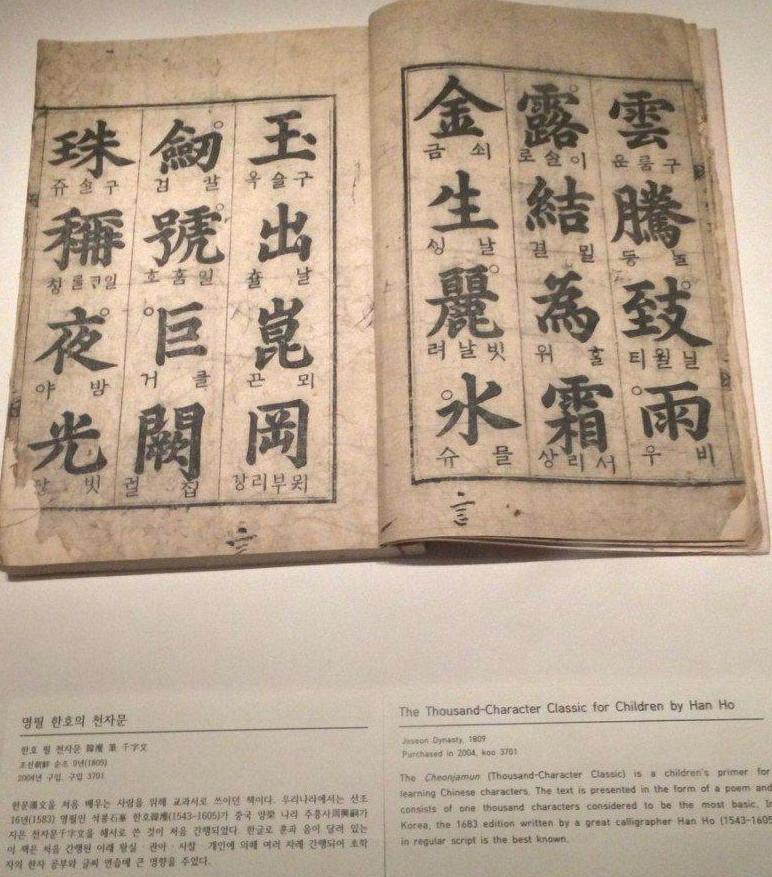 雲 구룸 운 騰 등 致 닐윌 티 雨 비 우
露 이슬 로 結 결 為 위 霜 서리 상
金 쇠 금 生 날 麗 빗날 려 水 믈 슈
玉 구슬 出 날 츌 崑 뫼 곤 岡 묏부리 강
劒 갈 검 號 일홈 호 巨 클 거 闕 집 궐
珠 구슬 쥬 稱 칭 夜 밤 야 光 빗
명필 한호의 천자문
한호 필 천자문 韓濩 筆 千字文
조선朝鮮 순조 9년(1809)
2004년 구입, 구입 3701
한문漢文을 처음 배우는 사람을 위해 교과서로 쓰이던 책이다. 우리나라에서는 선조
16년(1583) 명필인 석봉石峯 한호韓濩(1543-1605)가 중국 양梁 나라 주흥사周興嗣가
지은 천자문千字文을 해서로 쓴 것이 처음 간행되었다. 한글로 훈과 음이 달려 있는
이 책은 처음 간행된 이래 왕실·관아·사찰·개인에 의해 여러 차례 간행되어 초학
자의 한자 공부와 글씨 연습에 큰 영향을 주었다.
The Thousand-Character Classic for Children by Han Ho
Joseon Dynasty, 1809
Purchased in 2004, koo 3701
The Cheonjamun (Thousand-Character Classic) is a children's primer for
learning Chinese characters. The text is presented in the form of a poem and
consists of one thousand characters considered to be the most basic. In
Korea, the 1683 edition written by a great calligrapher Han Ho (1543-1605
in regular script is the best known.